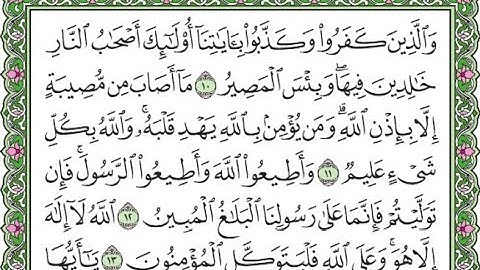 وَٱلَّذِينَ كَفَرُوا۟ وَكَذَّبُوا۟ بِـَٔايَـٰتِنَآ أُو۟لَـٰٓئِكَ أَصْحَـٰبُ ٱلنَّارِ
خَـٰلِدِينَ فِيهَا ۖ وَبِئْسَ ٱلْمَصِيرُ ١٠ مَآ أَصَابَ مِن مُّصِيبَةٍ
إِلَّا بِإِذْنِ ٱللَّهِ ۗ وَمَن يُؤْمِنۢ بِٱللَّهِ يَهْدِ قَلْبَهُۥ ۚ وَٱللَّهُ بِكُلِّ
شَىْءٍ عَلِيمٌ ١١ وَأَطِيعُوا۟ ٱللَّهَ وَأَطِيعُوا۟ ٱلرَّسُولَ ۚ فَإِن
تَوَلَّيْتُمْ فَإِنَّمَا عَلَىٰ رَسُولِنَا ٱلْبَلَـٰغُ ٱلْمُبِينُ ١٢ ٱللَّهُ لَآ إِلَـٰهَ
إِلَّا هُوَ ۚ وَعَلَى ٱللَّهِ فَلْيَتَوَكَّلِ ٱلْمُؤْمِنُونَ ١٣ يَـٰٓأَيُّهَا